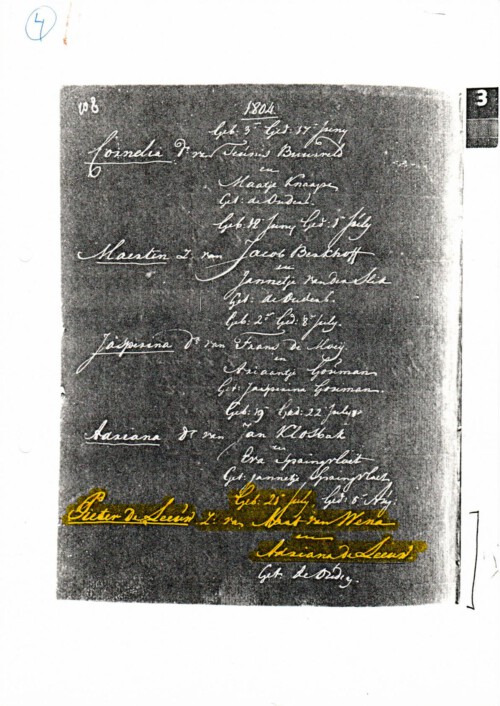 4
3
1804
Geb: 3e Ged: 17e Juny
Cornelia Dr van Teunis
en
Maatje Knaape
Get: de Ouders.
Geb: 12 Juny Ged: 1e July
Maerten Z. van Jacob Berkhoff
en
Jannetje van der Slik
Get: de Ouders.
Geb: 2e Ged: 8e July.
Jasperina Dr van Frans de Mooij
en
Ariaantje Houman
Get: Jasperina Houman.
Geb: 19 Ged: 22 July
Adriana Dr van Jan
en
Eva Spruijtvloet
Get: Jannetje Spruijtvloet
Geb: July Ged: 5 Aug:
Pieter de Leeuw Z: van Maat van Wena
en
Adriana de Leeuw.
Get: de Ouders.